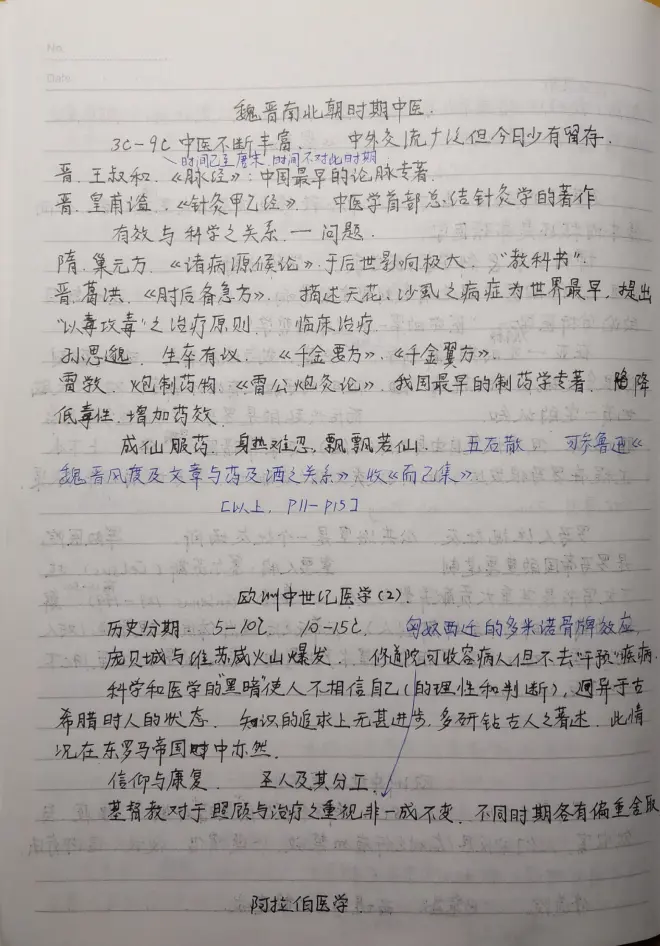 No.
Date
魏晋南北朝时期中医.
3C-9C 中医不断丰富. 中外交流广泛但今日少有留存.
时间已至唐宋.时间不对此时期
晋.王叔和.《脉经》:中国最早的论脉专著.
晋.皇甫谧.《针灸甲乙经》. 中医学首部总结针灸学的著作
有效与科学之关系.一问题.
隋.巢元方.《诸病源候论》.于后世影响极大."教科书".
晋.葛洪.《肘后备急方》. 描述天花.沙虱之病症为世界最早.提出
"以毒攻毒"之治疗原则. 临床治疗.
孙思邈. 生卒有议. 《千金要方》.《千金翼方》.
雷敩. 炮制药物.《雷公炮灸论》.我国最早的制药学专著. 降
低毒性.增加药效.
成仙服药. 身热难忍.飘飘若仙. 五石散. 可参鲁迅《
魏晋风度及文章与药及酒之关系》.收《而已集》.
[以上. P11-P15]
欧洲中世纪医学(2).
历史分期. 5-10C. 10-15C. 匈奴西迁的多米诺骨牌效应.
庞贝城与维苏威火山爆发. 修道院可收容病人但不去"干预"疾病.
科学和医学的"黑暗"使人不相信自己(的理性和判断),迥异于古
希腊时人的状态. 知识的追求上无甚进步.多研钻古人之著述.此情
况在东罗马帝国中亦然.
信仰与康复. 圣人及其分工.
基督教对于照顾与治疗之重视非一成不变.不同时期各有偏重舍取
阿拉伯医学.